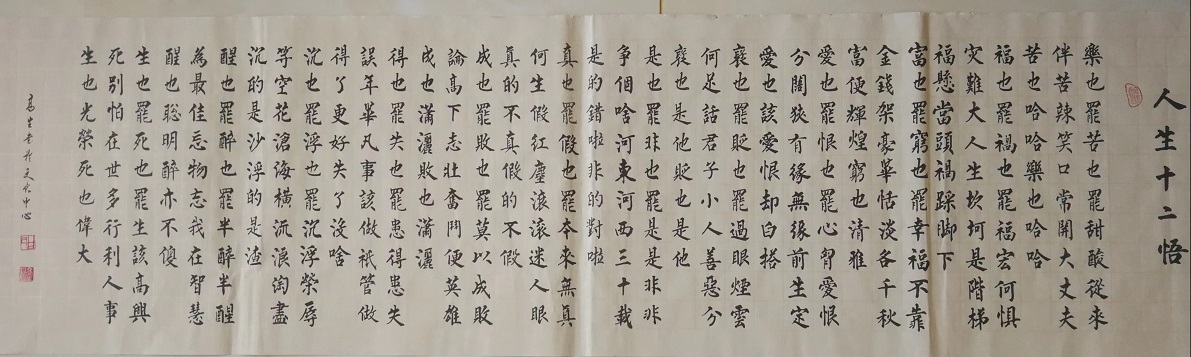 人生十二悟
樂也罷苦也罷甜酸從來
伴苦辣笑口常開大丈夫
苦也哈哈樂也哈哈
福也罷禍也罷福宏何惧
灾難大人生坎坷是階梯
福懸當頭禍踩脚下
富也罷窮也罷幸福不靠
金錢架豪華恬淡各千秋
富便輝煌窮也清雅
愛也罷恨也罷心胷愛恨
分闊狹有緣無緣前生定
愛也該愛恨却白搭
襃也罷貶也罷過眼煙雲
何足話君子小人善惡分
襃也是他貶也是他
是也罷非也罷是是非非
争個啥河東河西三十載
是的錯啦非的對啦
真也罷假也罷本來無真
何生假紅塵滚滚迷人眼
真的不真假的不假
成也罷敗也罷莫以成敗
論高下志壯奮鬥便英雄
成也瀟灑敗也瀟灑
得也罷失也罷患得患失
誤年華凡事該做衹管做
得了更好失了没啥
沉也罷浮也罷沉浮榮辱
等空花滄海橫流浪淘盡
沉的是沙浮的是渣
醒也罷醉也罷半醉半醒
為最佳忘物忘我在智慧
醒也聰明醉亦不傻
生也罷死也罷生該高興
死别怕在世多行利人事
生也光榮死也偉大